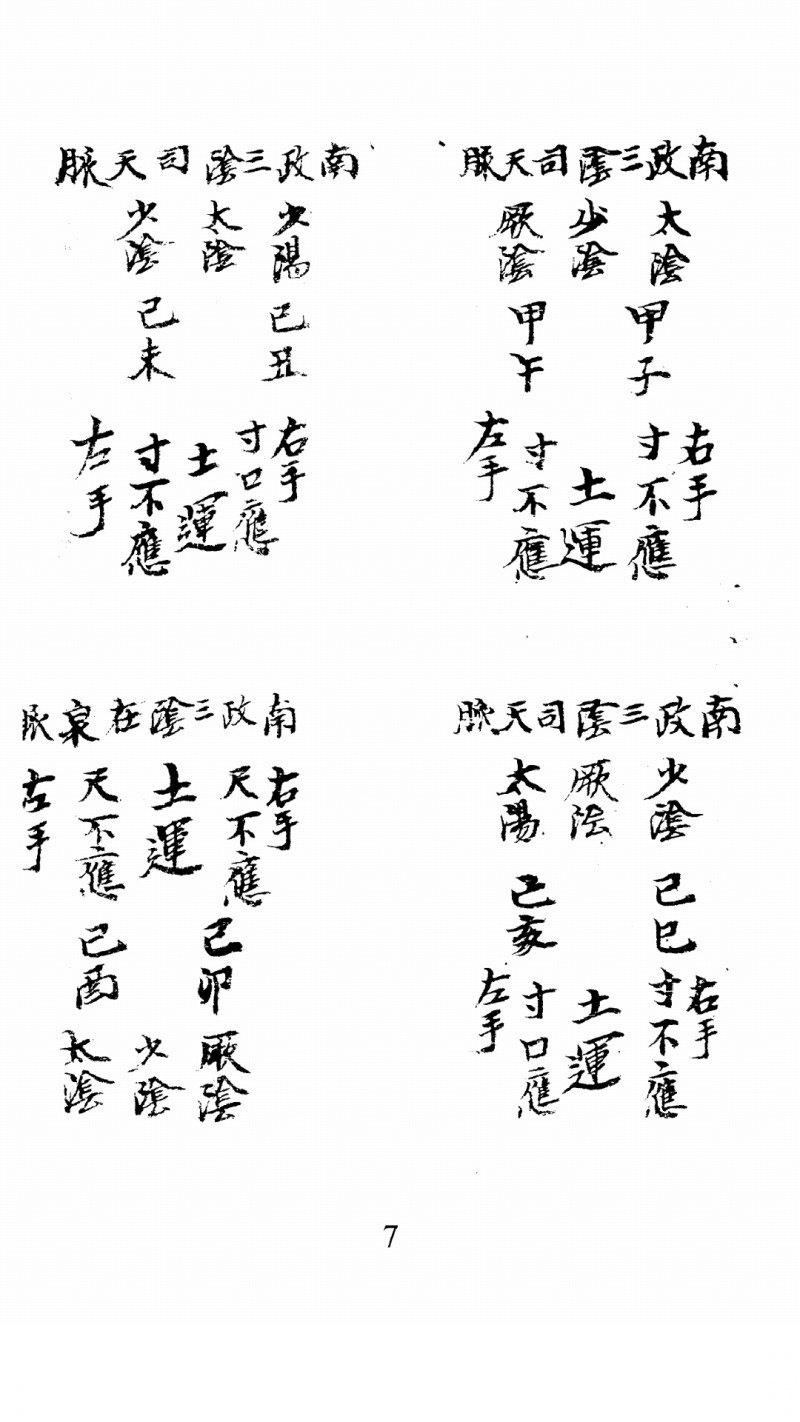 南政三陰司天脉
太陰 少陰 厥陰
甲子 甲午
右手 寸不應 土運 寸不應 左手
南政三陰司天脉
少陽 太陰 少陰
己丑 己未
右手 寸口應 土運 寸不應 左手
南政三陰司天脉
少陰 厥陰 太陽
己巳 己亥
右手 寸不應 土運 寸口應 左手
南政三陰在泉脉
右手 尺不應 土運 尺不應 左手
己卯 己酉
厥陰 少陰 太陰
7